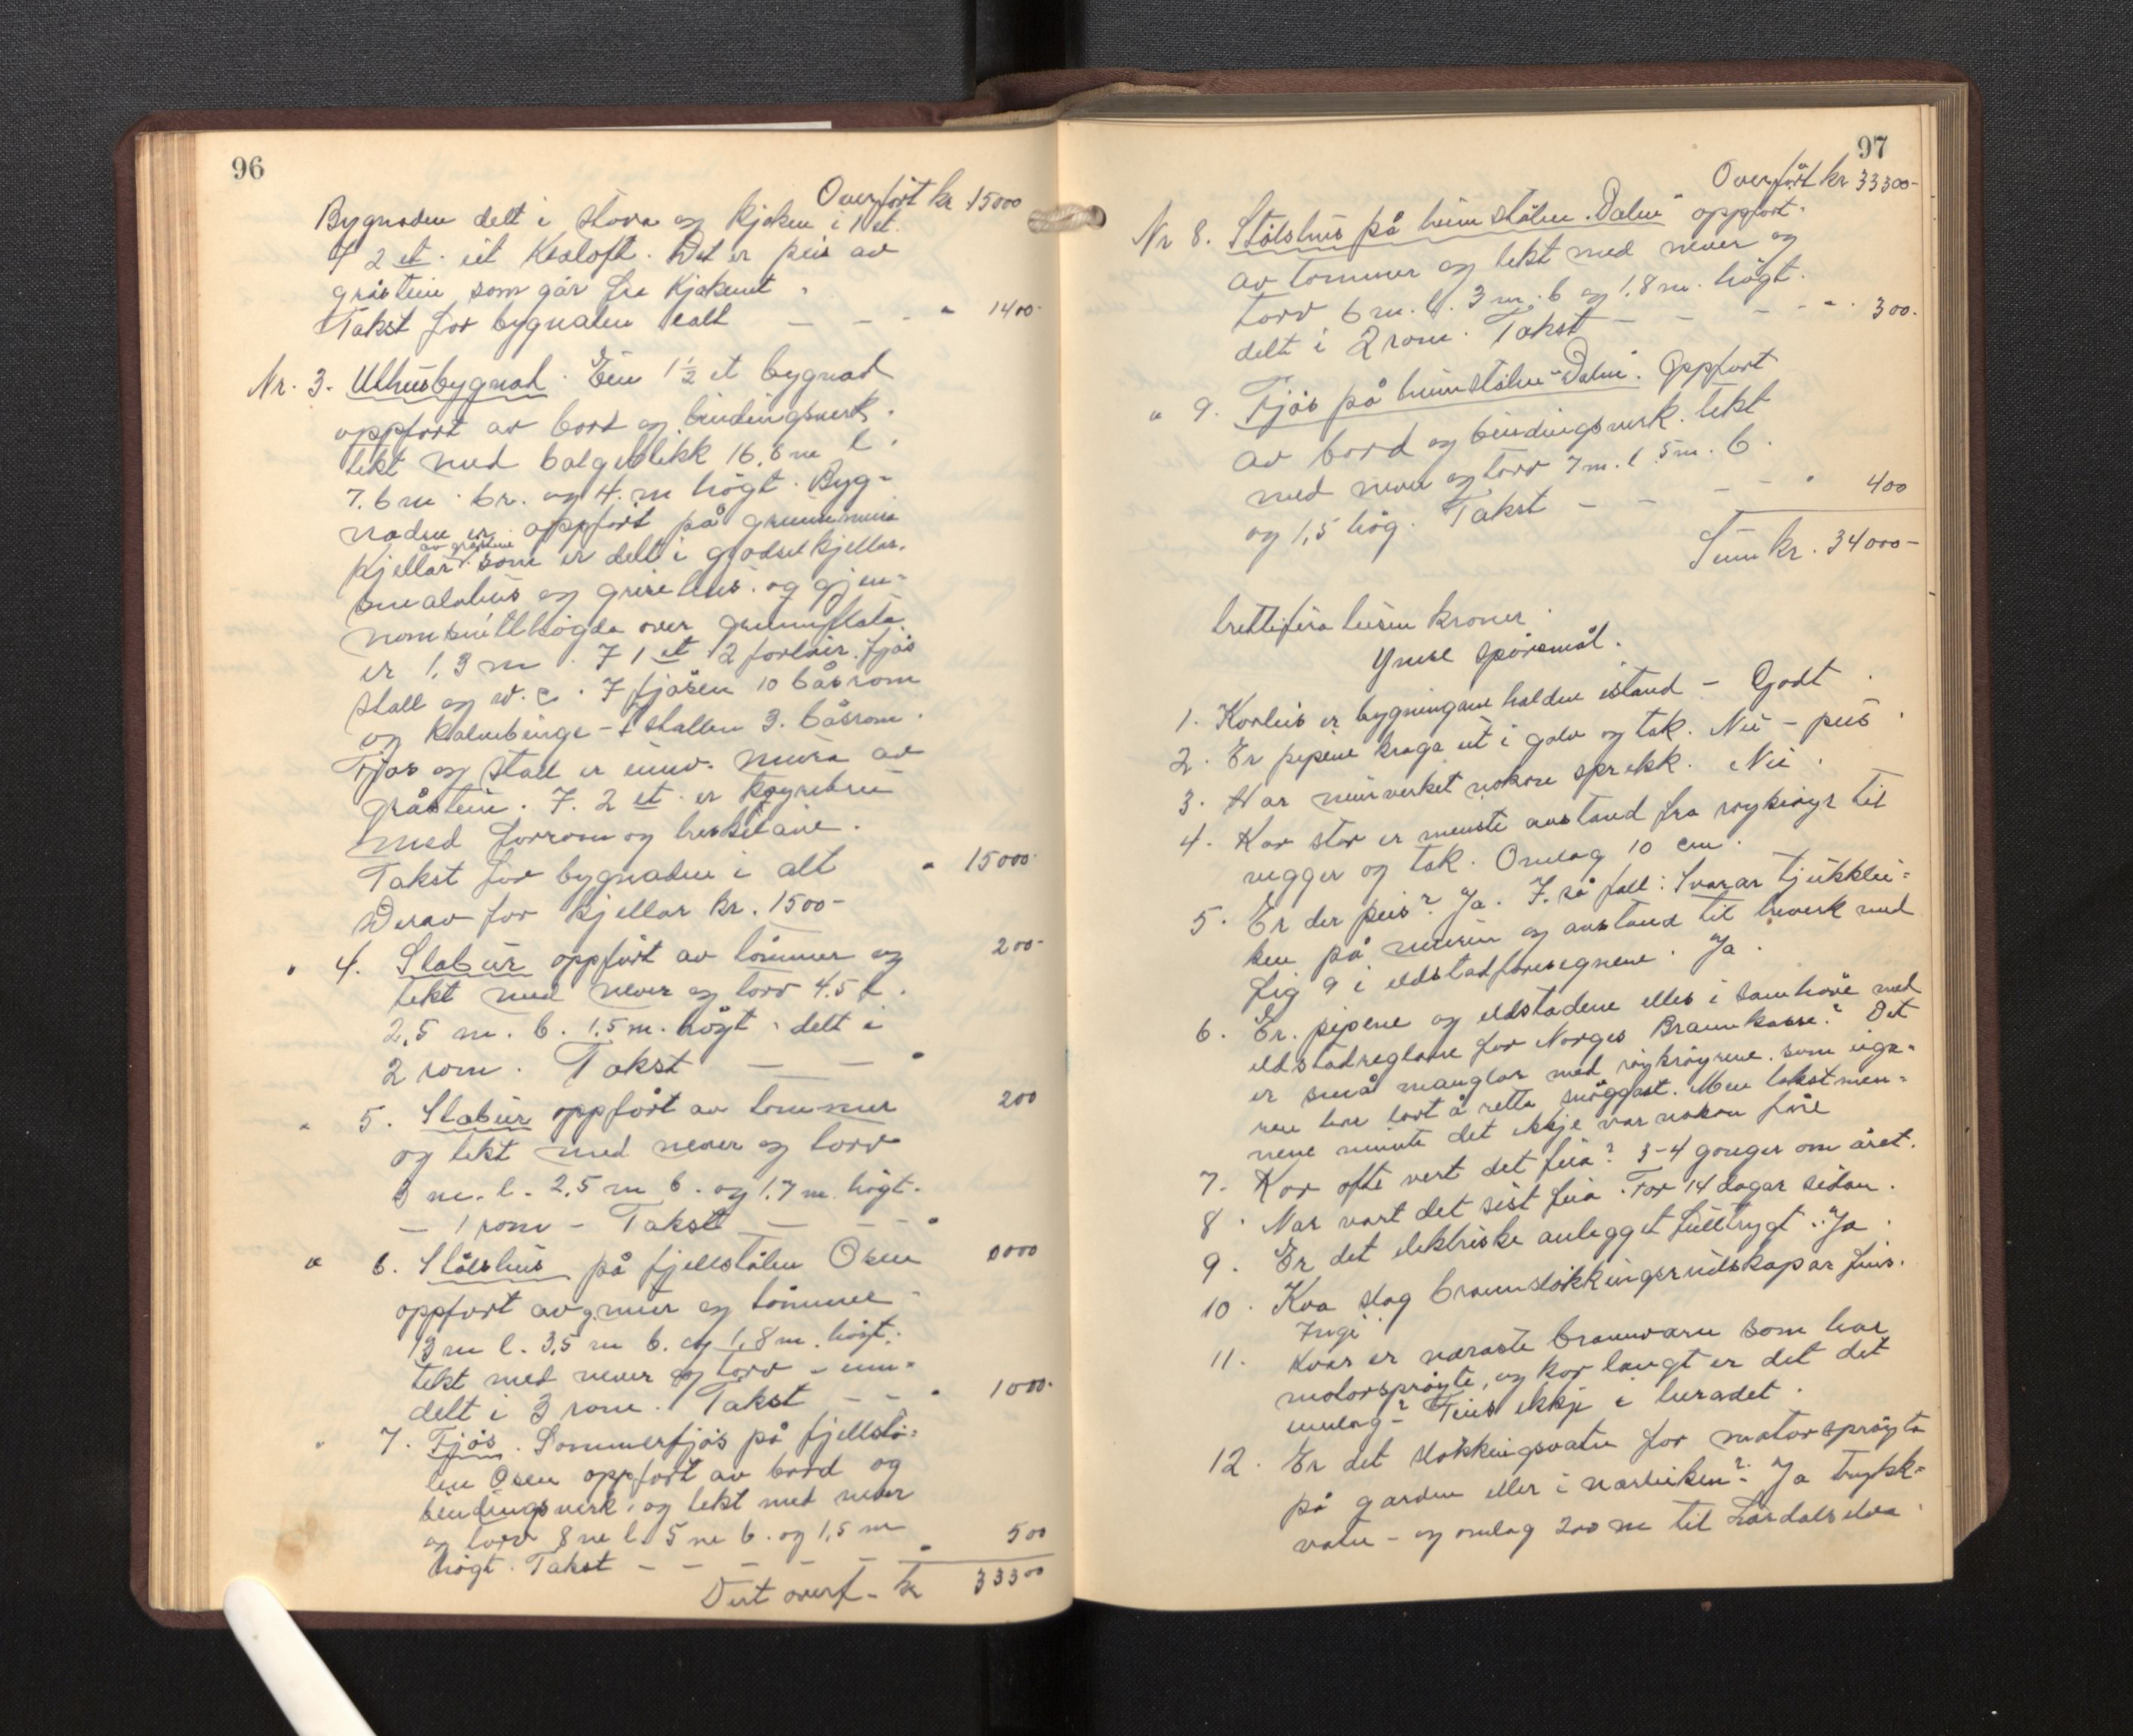 96
Overført kr 15000
Bygnaden delt i stova og kjøken i 1 et.
I 2 et. eit kvaloft. Det er peis av
gråstein som går fra kjøkenet.
Takst for bygnaden ialt — — - " 1400-
Nr. 3. Uthusbygnad. Ein 1½ et bygnad
oppført av bord og bindingsverk.
tekt med bølgeblekk 16,6 m l.
7.6 m. br. og 4. m høgt. Byg-
naden er oppført på grunnmur
av gråstein
kjellar som er delt i gjødselkjellar.
smalahus og grisehus. og gjen-
nomsnitthøgda over grunnflata
er 1,3 m. I 1 et 2 forløer. fjøs
stall og w.c. I fjøsen 10 båsrom
og kalvebinge - I stallen 3. båsrom.
Fjøs og stall er innv. mura av
gråstein. I. 2 et. er køyrebru
med forrom og treskelåve.
Takst for bygnaden i alt " 15000-
Derav for kjellar kr. 1500-
" 4. Stabur oppført av tømmer og 200-
tekt med never og torv 4.5 l.
2,5 m. b. 1.5 m. høgt. delt i
2 rom. Takst — — "
" 5. Stabur oppført av tømmer 200
og tekt med never og torv
3 m. l. 2,5 m b. og 1.7 m. høgt.
— 1 rom - Takst — - - "
" 6. Stølshus på fjellstølen Osen 0000
oppført av g.mur og tømmer
13 m l. 3,5 m b. og 1,8 m. høgt.
tekt med never og torv - inn-
delt i 3 rom. Takst - - " 1000-
" 7. Fjøs. Sommerfjøs på fjellstø-
len Osen oppført av bord og
bindingsverk, og tekt med never
og torv 8 m l. 5 m b. og 1,5 m
høgt. Takst — — — — — — " 500
Vert overf. kr 33300
97
Overført kr 33300-
Nr 8. Stølshus på heimstølen "Dalen" oppført.
av tømmer og tekt med never og
torv 6 m. l. 3 m. b og 1,8 m. høgt.
delt i 2 rom. Takst — — - - - 300.
" 9. Fjøs på heimstølen "Dalen". Oppført
av bord og bindingsverk. tekt
med never og torv 7 m. l. 5 m. b.
og 1,5 høg. Takst — — — - " 400
Sum kr. 34000-
trettifira tusen kroner.
Ymse spørsmål.
1. Korleis er bygningane haldne istand - Godt.
2. Er pipene kraga ut i golv og tak. Nei - peis.
3. Har murverket nokon sprekk. Nei.
4. Kor stor er minste avstand fra røykrøyr til
vegger og tak. Omlag 10 cm.
5. Er der peis? Ja. I. så fall: Svarar tjukklei-
ken på muren og avstand til treverk med
fig 9 i eldstadforesegnene. Ja.
6. Er. pipene og eldstadene elles i samhøve med
eldstadreglane for Norges Brannkasse? Det
er små manglar med røykrøyrene. som eiga-
ren har lovt å retta snøggast. Men takstmen-
nene meinte det ikkje var nokon fåre
7. Kor ofte vert det feia? 3-4 gonger om året.
8. Nar vart det sist feia. For 14 dagar sidan.
9. Er det elektriske anlegget fulltrygt. Ja.
10. Kva slag brannsløkkingsreidskapar fins.
Ingi.
11. Kvar er næraste brannvarn som har
motorsprøyte, og kor langt er det det
umlag? Fins ikkje i heradet.
12. Er det sløkkingsvatn for motorsprøyta
på garden eller i nærleiken? Ja Trykk-
vatn - og omlag 200 m til Lærdalselva.